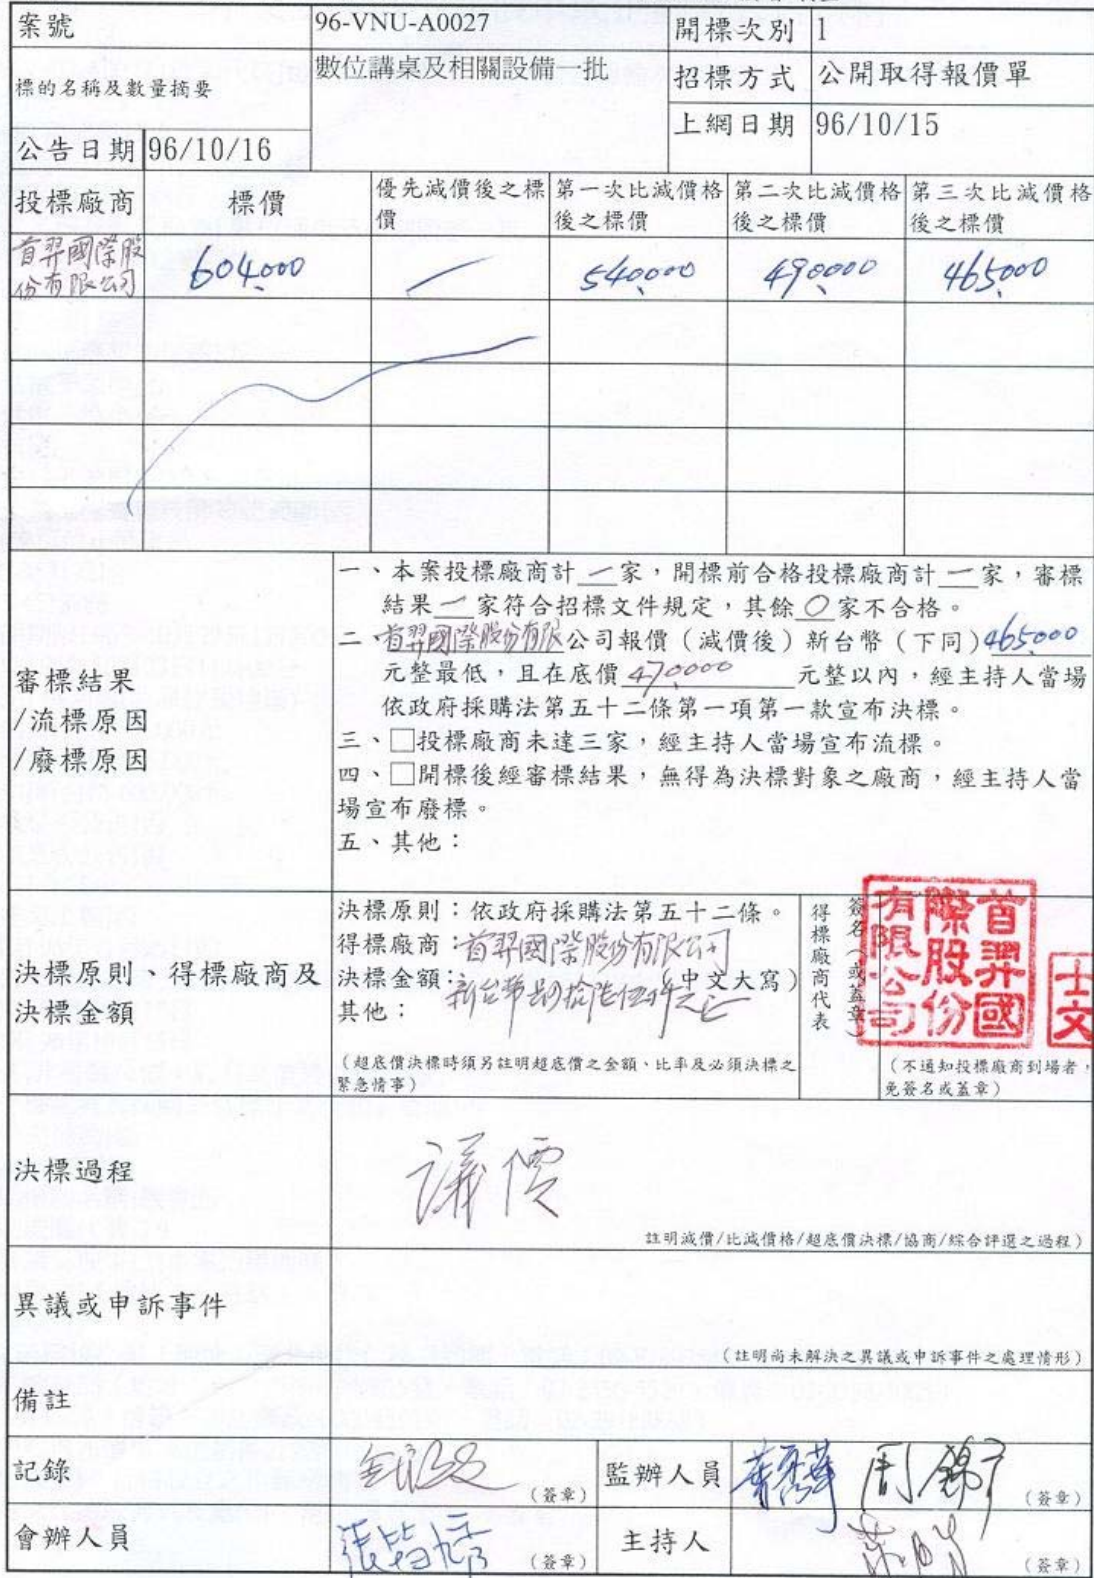 案號
96-VNU-A0027
開標次別
1
標的名稱及數量摘要
數位講桌及相關設備一批
招標方式
公開取得報價單
上網日期
96/10/15
公告日期
96/10/16
投標廠商
標價
優先減價後之標
價
第一次比減價格
後之標價
第二次比減價格
後之標價
第三次比減價格
後之標價
首羿國際股
份有限公司
604,000
540,000
490,000
465,000
審標結果
/流標原因
/廢標原因
一、本案投標廠商計 一 家，開標前合格投標廠商計 一 家，審標
結果 一 家符合招標文件規定，其餘 0 家不合格。
二、首羿國際股份有限公司報價（減價後）新台幣（下同）465,000
元整最低，且在底價 470,000 元整以內，經主持人當場
依政府採購法第五十二條第一項第一款宣布決標。
三、□投標廠商未達三家，經主持人當場宣布流標。
四、□開標後經審標結果，無得為決標對象之廠商，經主持人當
場宣布廢標。
五、其他：
決標原則、得標廠商及
決標金額
決標原則：依政府採購法第五十二條。
得標廠商：首羿國際股份有限公司
決標金額：新台幣肆拾陸伍仟元（中文大寫）
其他：
（超底價決標時須另註明超底價之金額、比率及必須決標之
緊急情事）
得標廠商代表
簽名（或蓋章）
首羿國
際股份
有限公司
士文
（不通知投標廠商到場者，
免簽名或蓋章）
決標過程
議價
註明減價/比減價格/超底價決標/協商/綜合評選之過程）
異議或申訴事件
（註明尚未解決之異議或申訴事件之處理情形）
備註
記錄
（簽章）
監辦人員
（簽章）
會辦人員
（簽章）
主持人
（簽章）